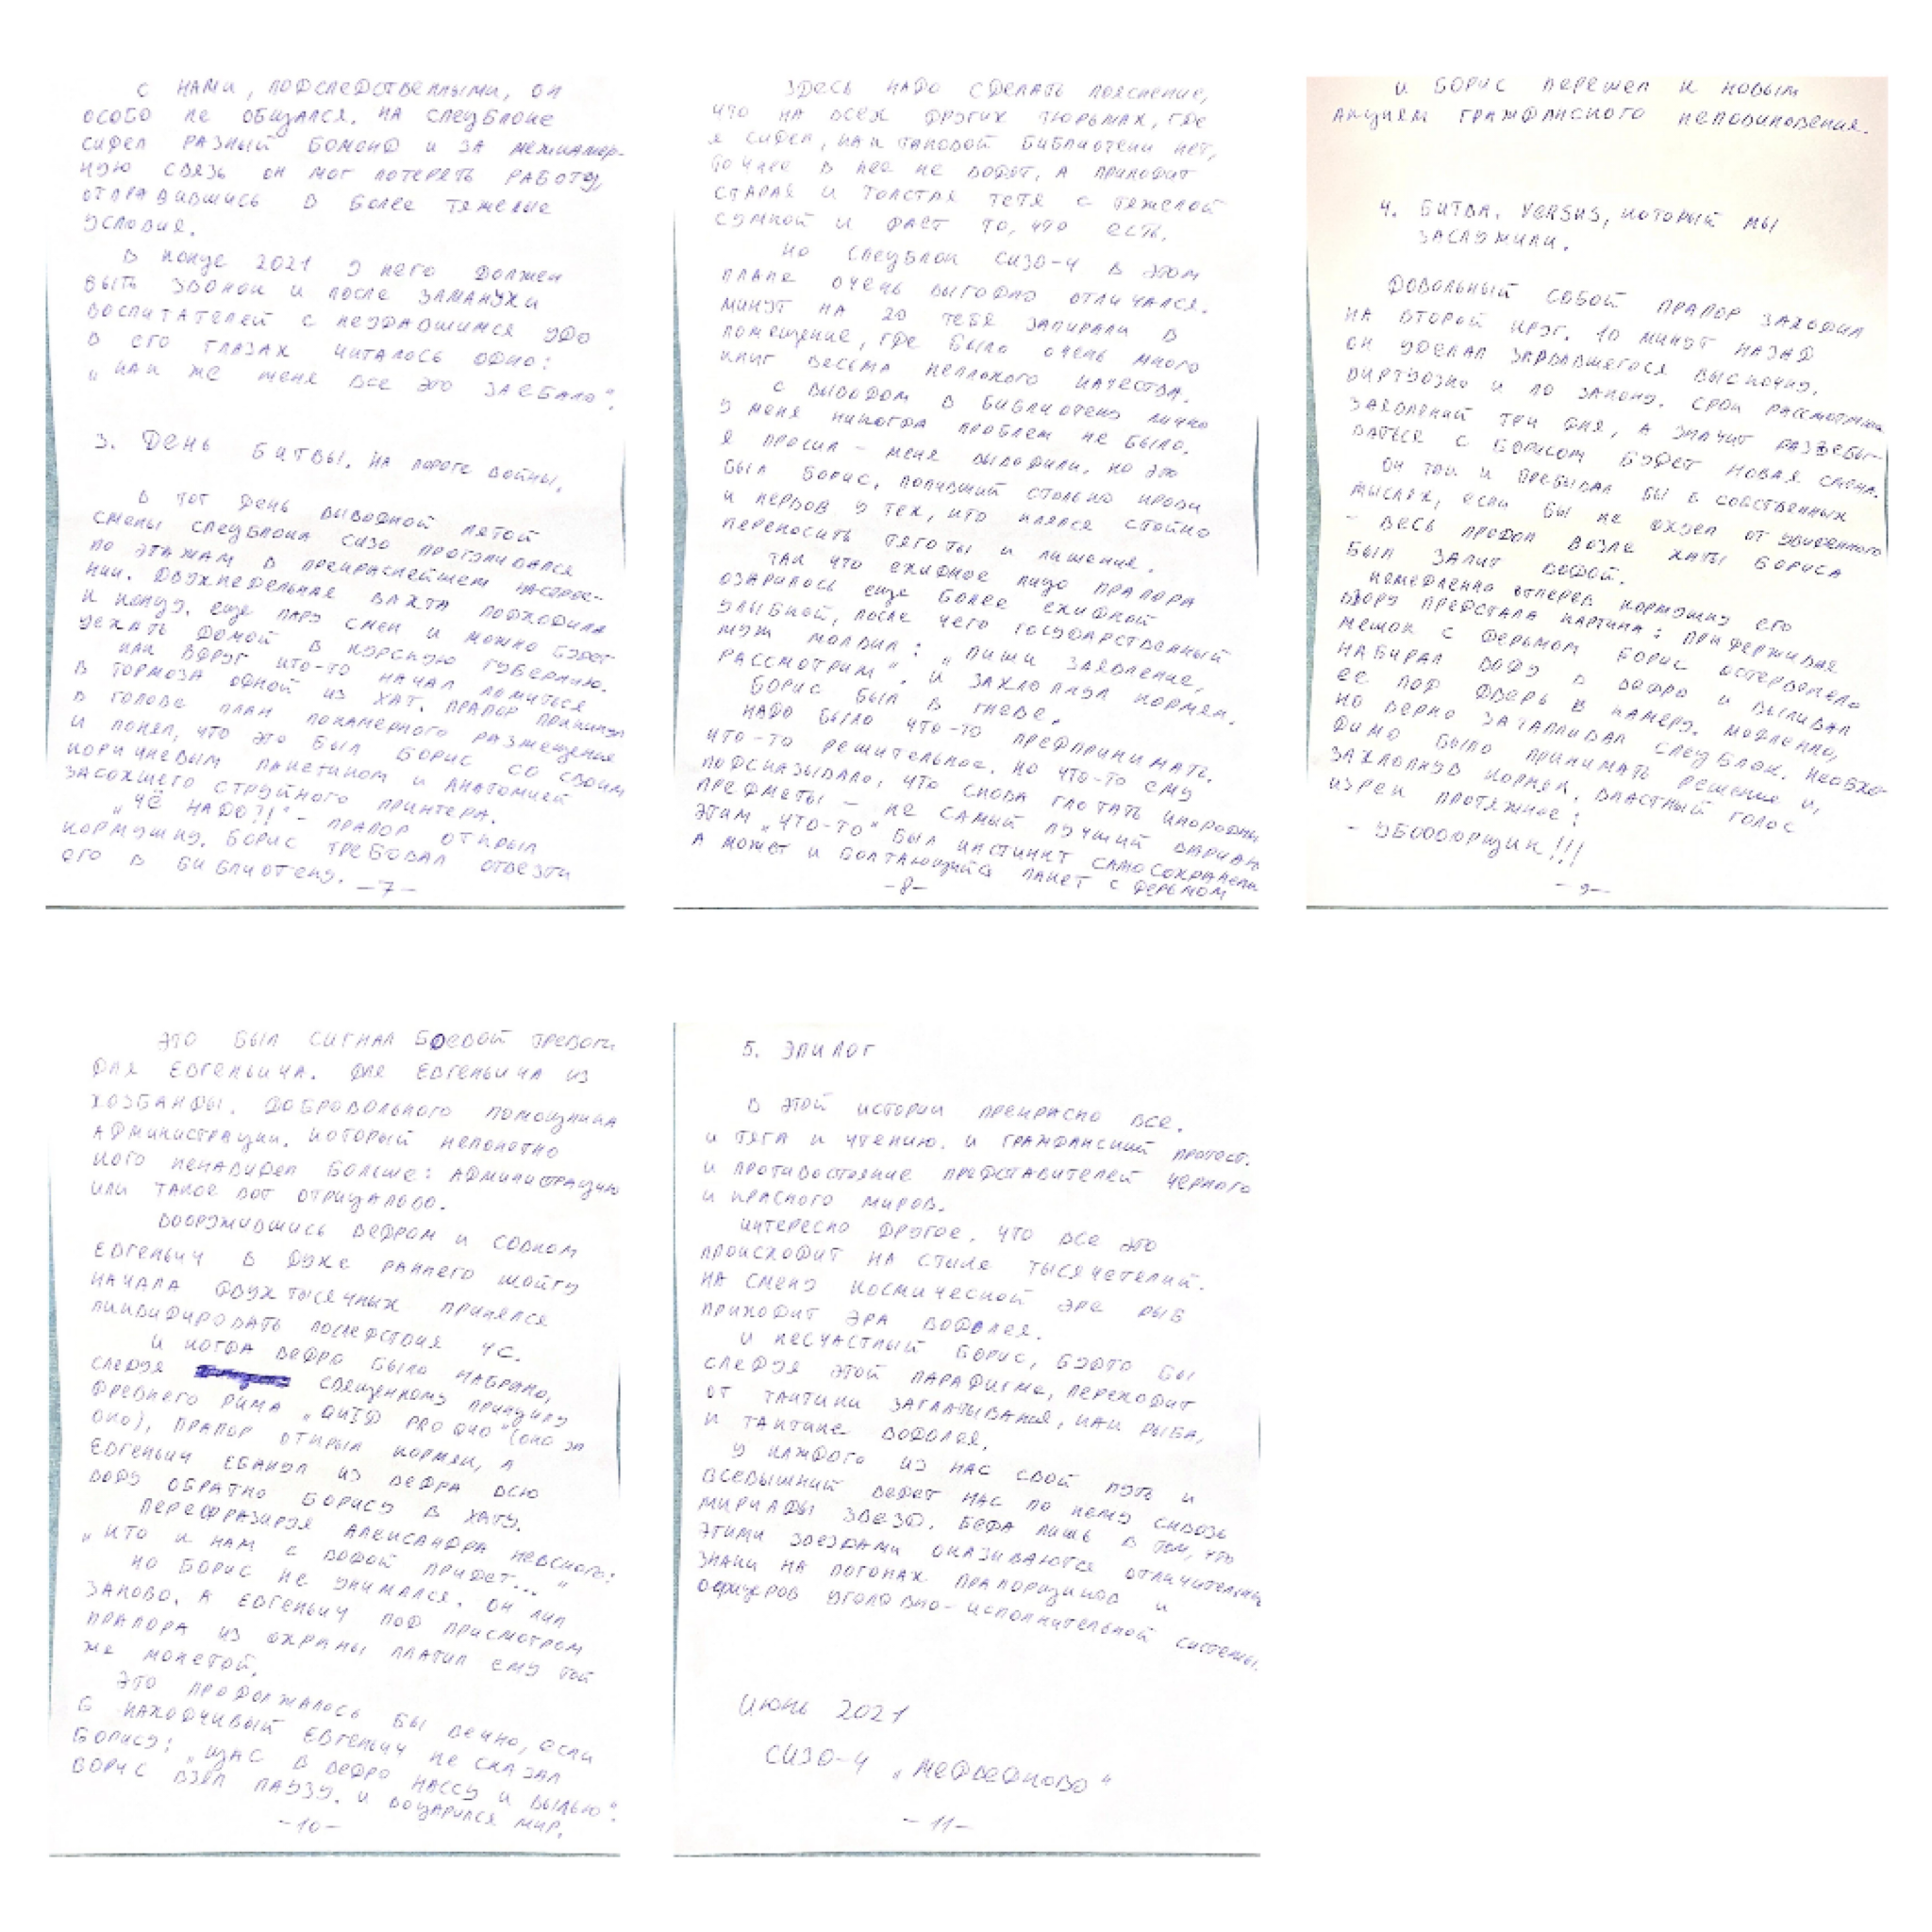 С НАМИ, ПОДСЛЕДСТВЕННЫМИ, ОН
ОСОБО НЕ ОБЩАЛСЯ. НА СПЕЦБЛОКЕ
СИДЕЛ РАЗНЫЙ БОМОНД И ЗА МЕЖКАМЕР-
НУЮ СВЯЗЬ ОН МОГ ПОТЕРЯТЬ РАБОТУ,
ОТПРАВИВШИСЬ В БОЛЕЕ ТЯЖЕЛЫЕ
УСЛОВИЯ.
В КОНЦЕ 2021 У НЕГО ДОЛЖЕН
БЫТЬ ЗВОНОК И ПОСЛЕ ЗАМАНУХИ
ВОСПИТАТЕЛЕЙ С НЕУДАВШИМСЯ УДО
В ЕГО ГЛАЗАХ ЧИТАЛОСЬ ОДНО:
„КАК ЖЕ МЕНЯ ВСЕ ЭТО ЗАЕБАЛО".
3. ДЕНЬ БИТВЫ. НА ПОРОГЕ ВОЙНЫ.
В ТОТ ДЕНЬ ВЫВОДНОЙ ПЯТОЙ
СМЕНЫ СПЕЦБЛОКА СИЗО ПРОГУЛИВАЛСЯ
ПО ЭТАЖАМ В ПРЕКРАСНЕЙШЕМ НАСТРОЕ-
НИИ. ДВУХНЕДЕЛЬНАЯ ВАХТА ПОДХОДИЛА
К КОНЦУ. ЕЩЕ ПАРУ СМЕН И МОЖНО БУДЕТ
УЕХАТЬ ДОМОЙ В КУРСКУЮ ГУБЕРНИЮ.
КАК ВДРУГ КТО-ТО НАЧАЛ ЛОМИТЬСЯ
В ТОРМОЗА ОДНОЙ ИЗ ХАТ. ПРАПОР ПРИКИНУЛ
В ГОЛОВЕ ПЛАН ПОКАМЕРНОГО РАЗМЕЩЕНИЯ
И ПОНЯЛ, ЧТО ЭТО БЫЛ БОРИС СО СВОИМ
КОРИЧНЕВЫМ ПАКЕТИКОМ И АНАТОМИЕЙ
ЗАСОХШЕГО СТРУЙНОГО ПРИНТЕРА.
„ЧЁ НАДО?!" - ПРАПОР ОТКРЫЛ
КОРМУШКУ. БОРИС ТРЕБОВАЛ ОТВЕЗТИ
ЕГО В БИБЛИОТЕКУ.
-7-
ЗДЕСЬ НАДО СДЕЛАТЬ ПОЯСНЕНИЕ,
ЧТО НА ВСЕХ ДРУГИХ ТЮРЬМАХ, ГДЕ
Я СИДЕЛ, КАК ТАКОВОЙ БИБЛИОТЕКИ НЕТ,
ТОЧНЕЕ В НЕЕ НЕ ВОДЯТ, А ПРИХОДИТ
СТАРАЯ И ТОЛСТАЯ ТЕТЯ С ТЯЖЕЛОЙ
СУМКОЙ И ДАЕТ ТО, ЧТО ЕСТЬ.
НО СПЕЦБЛОК СИЗО-4 В ЭТОМ
ПЛАНЕ ОЧЕНЬ ВЫГОДНО ОТЛИЧАЛСЯ.
МИНУТ НА 20 ТЕБЯ ЗАПИРАЛИ В
ПОМЕЩЕНИЕ, ГДЕ БЫЛО ОЧЕНЬ МНОГО
КНИГ ВЕСЬМА НЕПЛОХОГО КАЧЕСТВА.
С ВЫВОДОМ В БИБЛИОТЕКУ ЛИЧНО
У МЕНЯ НИКОГДА ПРОБЛЕМ НЕ БЫЛО.
Я ПРОСИЛ - МЕНЯ ВЫВОДИЛИ, НО ЭТО
БЫЛ БОРИС, ПОПИВШИЙ СТОЛЬКО КРОВИ
И НЕРВОВ У ТЕХ, КТО КЛЯЛСЯ СТОЙКО
ПЕРЕНОСИТЬ ТЯГОТЫ И ЛИШЕНИЯ.
ТАК ЧТО ЕХИДНОЕ ЛИЦО ПРАПОРА
ОЗАРИЛОСЬ ЕЩЕ БОЛЕЕ ЕХИДНОЙ
УЛЫБКОЙ, ПОСЛЕ ЧЕГО ГОСУДАРСТВЕННЫЙ
МУЖ МОЛВИЛ: „ПИШИ ЗАЯВЛЕНИЕ,
РАССМОТРИМ". И ЗАХЛОПНУЛ КОРМЯК.
БОРИС БЫЛ В ГНЕВЕ.
НАДО БЫЛО ЧТО-ТО ПРЕДПРИНИМАТЬ.
ЧТО-ТО РЕШИТЕЛЬНОЕ. НО ЧТО-ТО ЕМУ
ПОДСКАЗЫВАЛО, ЧТО СНОВА ГЛОТАТЬ ИНОРОДНЫ
ПРЕДМЕТЫ - НЕ САМЫЙ ЛУЧШИЙ ВАРИАН
ЭТИМ „ЧТО-ТО" БЫЛ ИНСТИНКТ САМОСОХРАНЕНИ
А МОЖЕТ И БОЛТАЮЩИЙСЯ ПАКЕТ С ДЕРЬМОМ
-8-
И БОРИС ПЕРЕШЕЛ К НОВЫМ
АКЦИЯМ ГРАЖДАНСКОГО НЕПОВИНОВЕНИЯ.
4. БИТВА. VERSUS, КОТОРЫЙ МЫ
ЗАСЛУЖИЛИ.
ДОВОЛЬНЫЙ СОБОЙ ПРАПОР ЗАХОДИЛ
НА ВТОРОЙ КРУГ. 10 МИНУТ НАЗАД
ОН УДЕЛАЛ ЗАРВАВШЕГОСЯ ВЫСКОЧКУ.
ВИРТУОЗНО И ПО ЗАКОНУ. СРОК РАССМОТРЕНИЯ
ЗАЯВЛЕНИЙ ТРИ ДНЯ, А ЗНАЧИТ РАЗЪЕБЫ-
ВАТЬСЯ С БОРИСОМ БУДЕТ НОВАЯ СМЕНА.
ОН ТАК И ПРЕБЫВАЛ БЫ В СОБСТВЕННЫХ
МЫСЛЯХ, ЕСЛИ БЫ НЕ ОХУЕЛ ОТ УВИДЕННОГО
- ВЕСЬ ПРОДОЛ ВОЗЛЕ ХАТЫ БОРИСА
БЫЛ ЗАЛИТ ВОДОЙ.
НЕМЕДЛЕННО ОТПЕРЕВ КОРМУШКУ ЕГО
ВЗОРУ ПРЕДСТАЛА КАРТИНА: ПРИДЕРЖИВАЯ
МЕШОК С ДЕРЬМОМ БОРИС ОСТЕРВЕНЕЛО
НАБИРАЛ ВОДУ В ВЕДРО И ВЫЛИВАЛ
ЕЕ ПОД ДВЕРЬ В КАМЕРУ. МЕДЛЕННО,
НО ВЕРНО ЗАТАПЛИВАЛ СПЕЦБЛОК. НЕОБХО-
ДИМО БЫЛО ПРИНИМАТЬ РЕШЕНИЕ И,
ЗАХЛОПНУВ КОРМЯК. ВЛАСТНЫЙ ГОЛОС
ИЗРЕК ПРОТЯЖНОЕ:
- УБОООООРЩИК!!!
-9-
ЭТО БЫЛ СИГНАЛ БОЕВОЙ ТРЕВОГИ
ДЛЯ ЕВГЕНЬИЧА. ДЛЯ ЕВГЕНЬИЧА ИЗ
ХОЗБАНДЫ. ДОБРОВОЛЬНОГО ПОМОЩНИКА
АДМИНИСТРАЦИИ. КОТОРЫЙ НЕПОНЯТНО
КОГО НЕНАВИДЕЛ БОЛЬШЕ: АДМИНИСТРАЦИЮ
ИЛИ ТАКОЕ ВОТ ОТРИЦАЛОВО.
ВООРУЖИВШИСЬ ВЕДРОМ И СОВКОМ
ЕВГЕНЬИЧ В ДУХЕ РАННЕГО ШОЙГУ
НАЧАЛА ДВУХТЫСЯЧНЫХ ПРИНЯЛСЯ
ЛИКВИДИРОВАТЬ ПОСЛЕДСТВИЯ ЧС.
И КОГДА ВЕДРО БЫЛО НАБРАНО,
СЛЕДУЯ СВЯЩЕННОМУ ПРИНЦИПУ
ДРЕВНЕГО РИМА „QUID PRO QUO" (ОКО ЗА
ОКО), ПРАПОР ОТКРЫЛ КОРМЯК, А
ЕВГЕНЬИЧ ЕБАНУЛ ИЗ ВЕДРА ВСЮ
ВОДУ ОБРАТНО БОРИСУ В ХАТУ.
ПЕРЕФРАЗИРУЯ АЛЕКСАНДРА НЕВСКОГО:
„КТО К НАМ С ВОДОЙ ПРИДЕТ... "
НО БОРИС НЕ УНИМАЛСЯ. ОН ЛИЛ
ЗАНОВО. А ЕВГЕНЬИЧ ПОД ПРИСМОТРОМ
ПРАПОРА ИЗ ОХРАНЫ ПЛАТИЛ ЕМУ ТОЙ
ЖЕ МОНЕТОЙ.
ЭТО ПРОДОЛЖАЛОСЬ БЫ ВЕЧНО, ЕСЛИ
Б НАХОДЧИВЫЙ ЕВГЕНЬИЧ НЕ СКАЗАЛ
БОРИСУ: „ЩАС В ВЕДРО НАССУ И ВЫЛЬЮ".
БОРИС ВЗЯЛ ПАУЗУ. И ВОЦАРИЛСЯ МИР.
-10-
5. ЭПИЛОГ
В ЭТОЙ ИСТОРИИ ПРЕКРАСНО ВСЕ.
И ТЯГА К ЧТЕНИЮ. И ГРАЖДАНСКИЙ ПРОТЕСТ.
И ПРОТИВОСТОЯНИЕ ПРЕДСТАВИТЕЛЕЙ ЧЕРНОГО
И КРАСНОГО МИРОВ.
ИНТЕРЕСНО ДРУГОЕ. ЧТО ВСЕ ЭТО
ПРОИСХОДИТ НА СТЫКЕ ТЫСЯЧЕЛЕТИЙ.
НА СМЕНУ КОСМИЧЕСКОЙ ЭРЕ РЫБ
ПРИХОДИТ ЭРА ВОДОЛЕЯ.
И НЕСЧАСТНЫЙ БОРИС, БУДТО БЫ
СЛЕДУЯ ЭТОЙ ПАРАДИГМЕ, ПЕРЕХОДИТ
ОТ ТАКТИКИ ЗАГЛАТЫВАНИЯ, КАК РЫБА,
К ТАКТИКЕ ВОДОЛЕЯ.
У КАЖДОГО ИЗ НАС СВОЙ ПУТЬ И
ВСЕВЫШНИЙ ВЕДЕТ НАС ПО НЕМУ СКВОЗЬ
МИРИАДЫ ЗВЕЗД. БЕДА ЛИШЬ В ТОМ, ЧТО
ЭТИМИ ЗВЕЗДАМИ ОКАЗЫВАЮТСЯ ОТЛИЧИТЕЛЬНЫ
ЗНАКИ НА ПОГОНАХ ПРАПОРЩИКОВ И
ОФИЦЕРОВ УГОЛОВНО-ИСПОЛНИТЕЛЬНОЙ СИСТЕМЫ.
ИЮНЬ 2021
СИЗО-4 „МЕДВЕДКОВО"
-11-